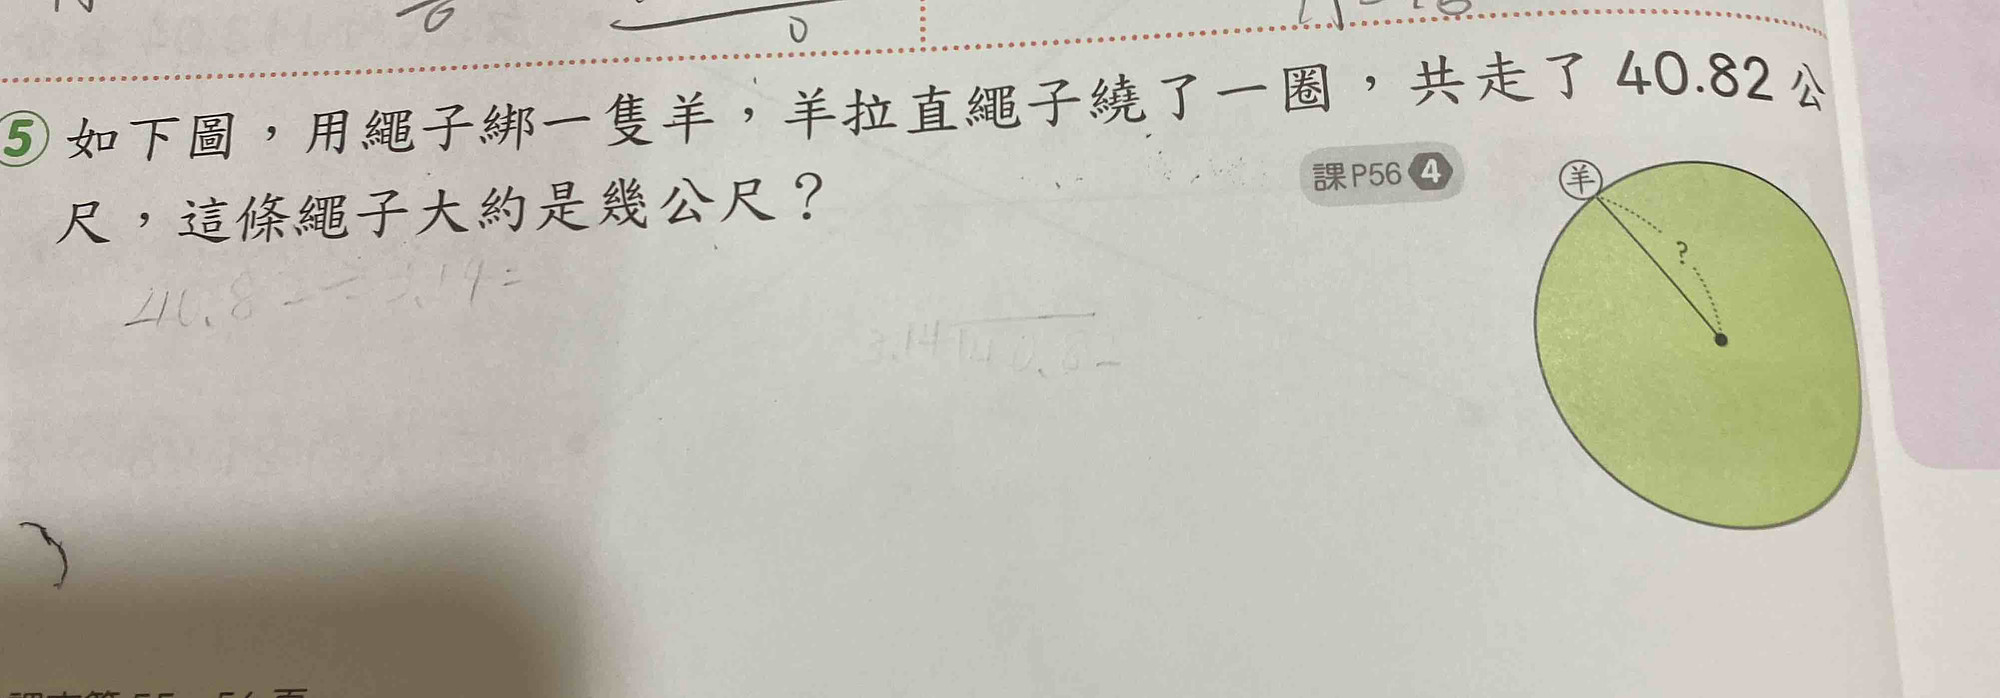 0
⑤如下圖，用繩子綁一隻羊，羊拉直繩子繞了一圈，共走了 40.82 公
尺，這條繩子大約是幾公尺？
課P56 4
羊
?
40.82÷3.14=
3.14 40.82